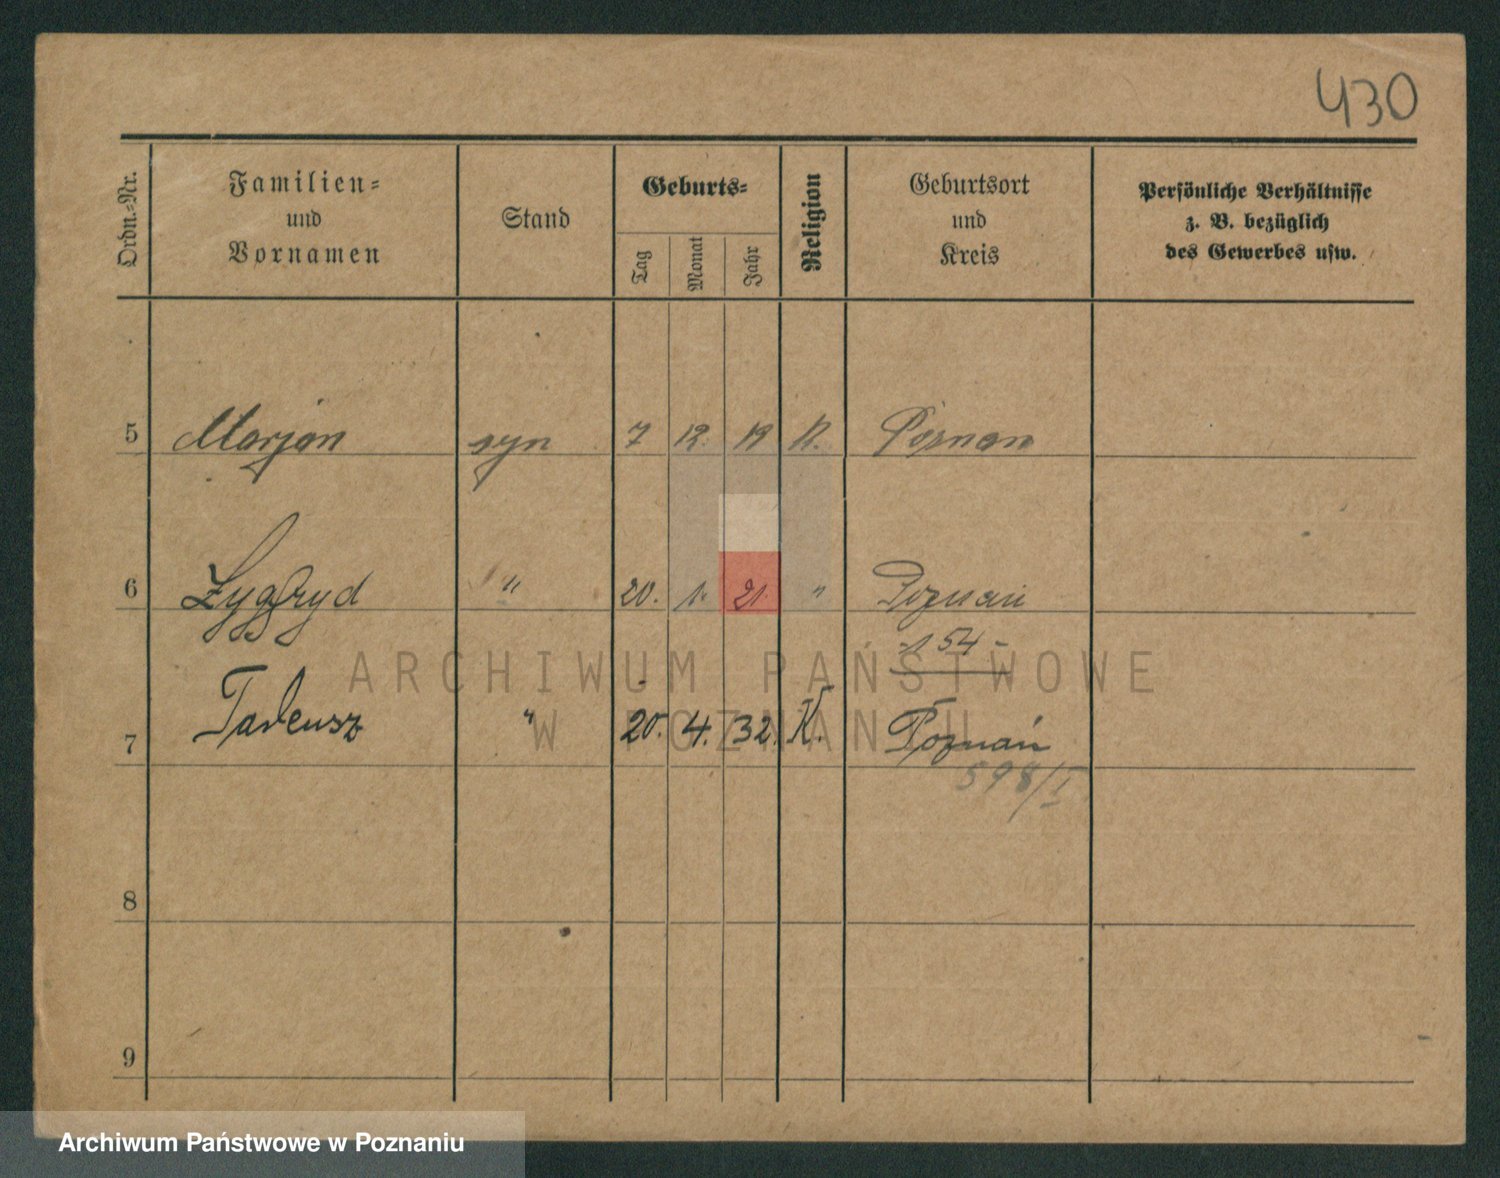 430
Ordn.-Nr.
Familien-
und
Vornamen
Stand
Geburts-
Tag
Monat
Jahr
Religion
Geburtsort
und
Kreis
Persönliche Verhältnisse
z. B. bezüglich
des Gewerbes usw.
5 Marjan syn 7 12. 19 K. Poznan
6 Zygfryd " 20. 1. 21. " Poznań
154 -
ARCHIWUM PAŃSTWOWE
W POZNANIU
7 Tadeusz " 20. 4. 32. K. Poznań
598/I
8
9
Archiwum Państwowe w Poznaniu